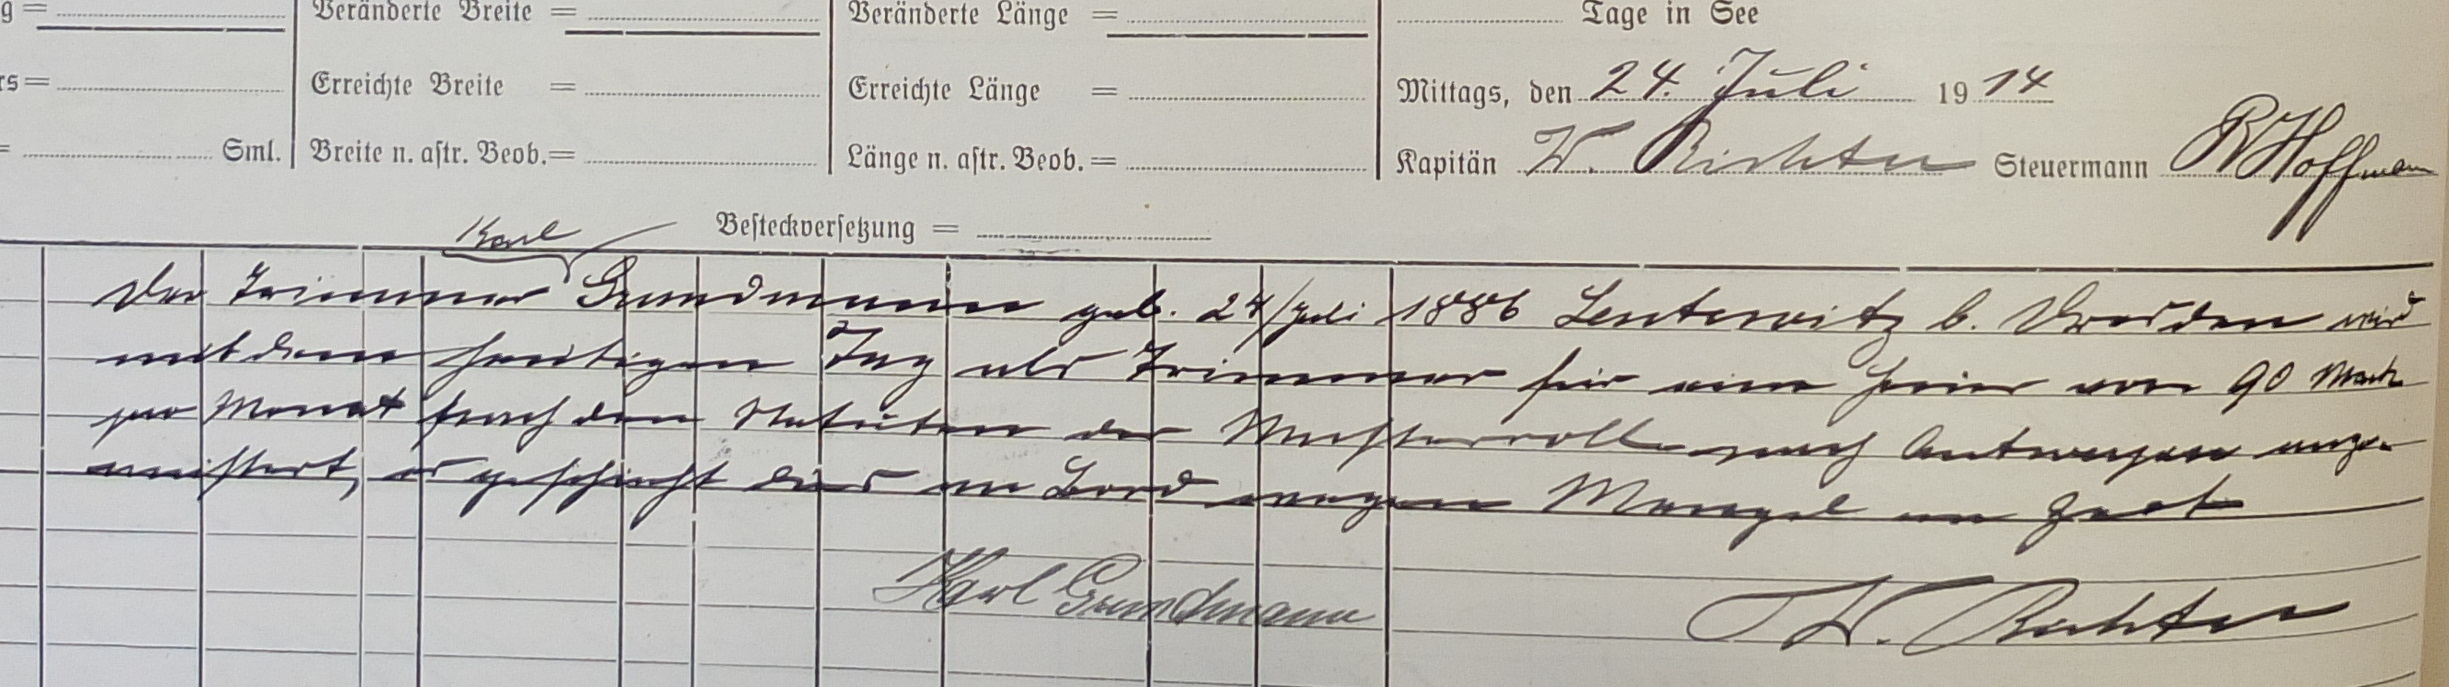 g =
Veränderte Breite =
Veränderte Länge =
Tage in See
rs =
Erreichte Breite =
Erreichte Länge =
Mittags, den 24. Juli 1914
= Sml.
Breite n. astr. Beob. =
Länge n. astr. Beob. =
Kapitän W. Richter Steuermann R Hoffmann
Besteckversetzung =
Karl
Der Trimmer Grundmann geb. 24/Juli 1886 Leutewitz b. Dresden wird
mit dem heutigen Tag als Trimmer für eine Heuer von 90 Mark
pro Monat nach den Statuten der Musterrolle nach Antwerpen ange-
mustert, es geschieht dies an Bord wegen Mangel an Zeit
Karl Grundmann
W. Richter